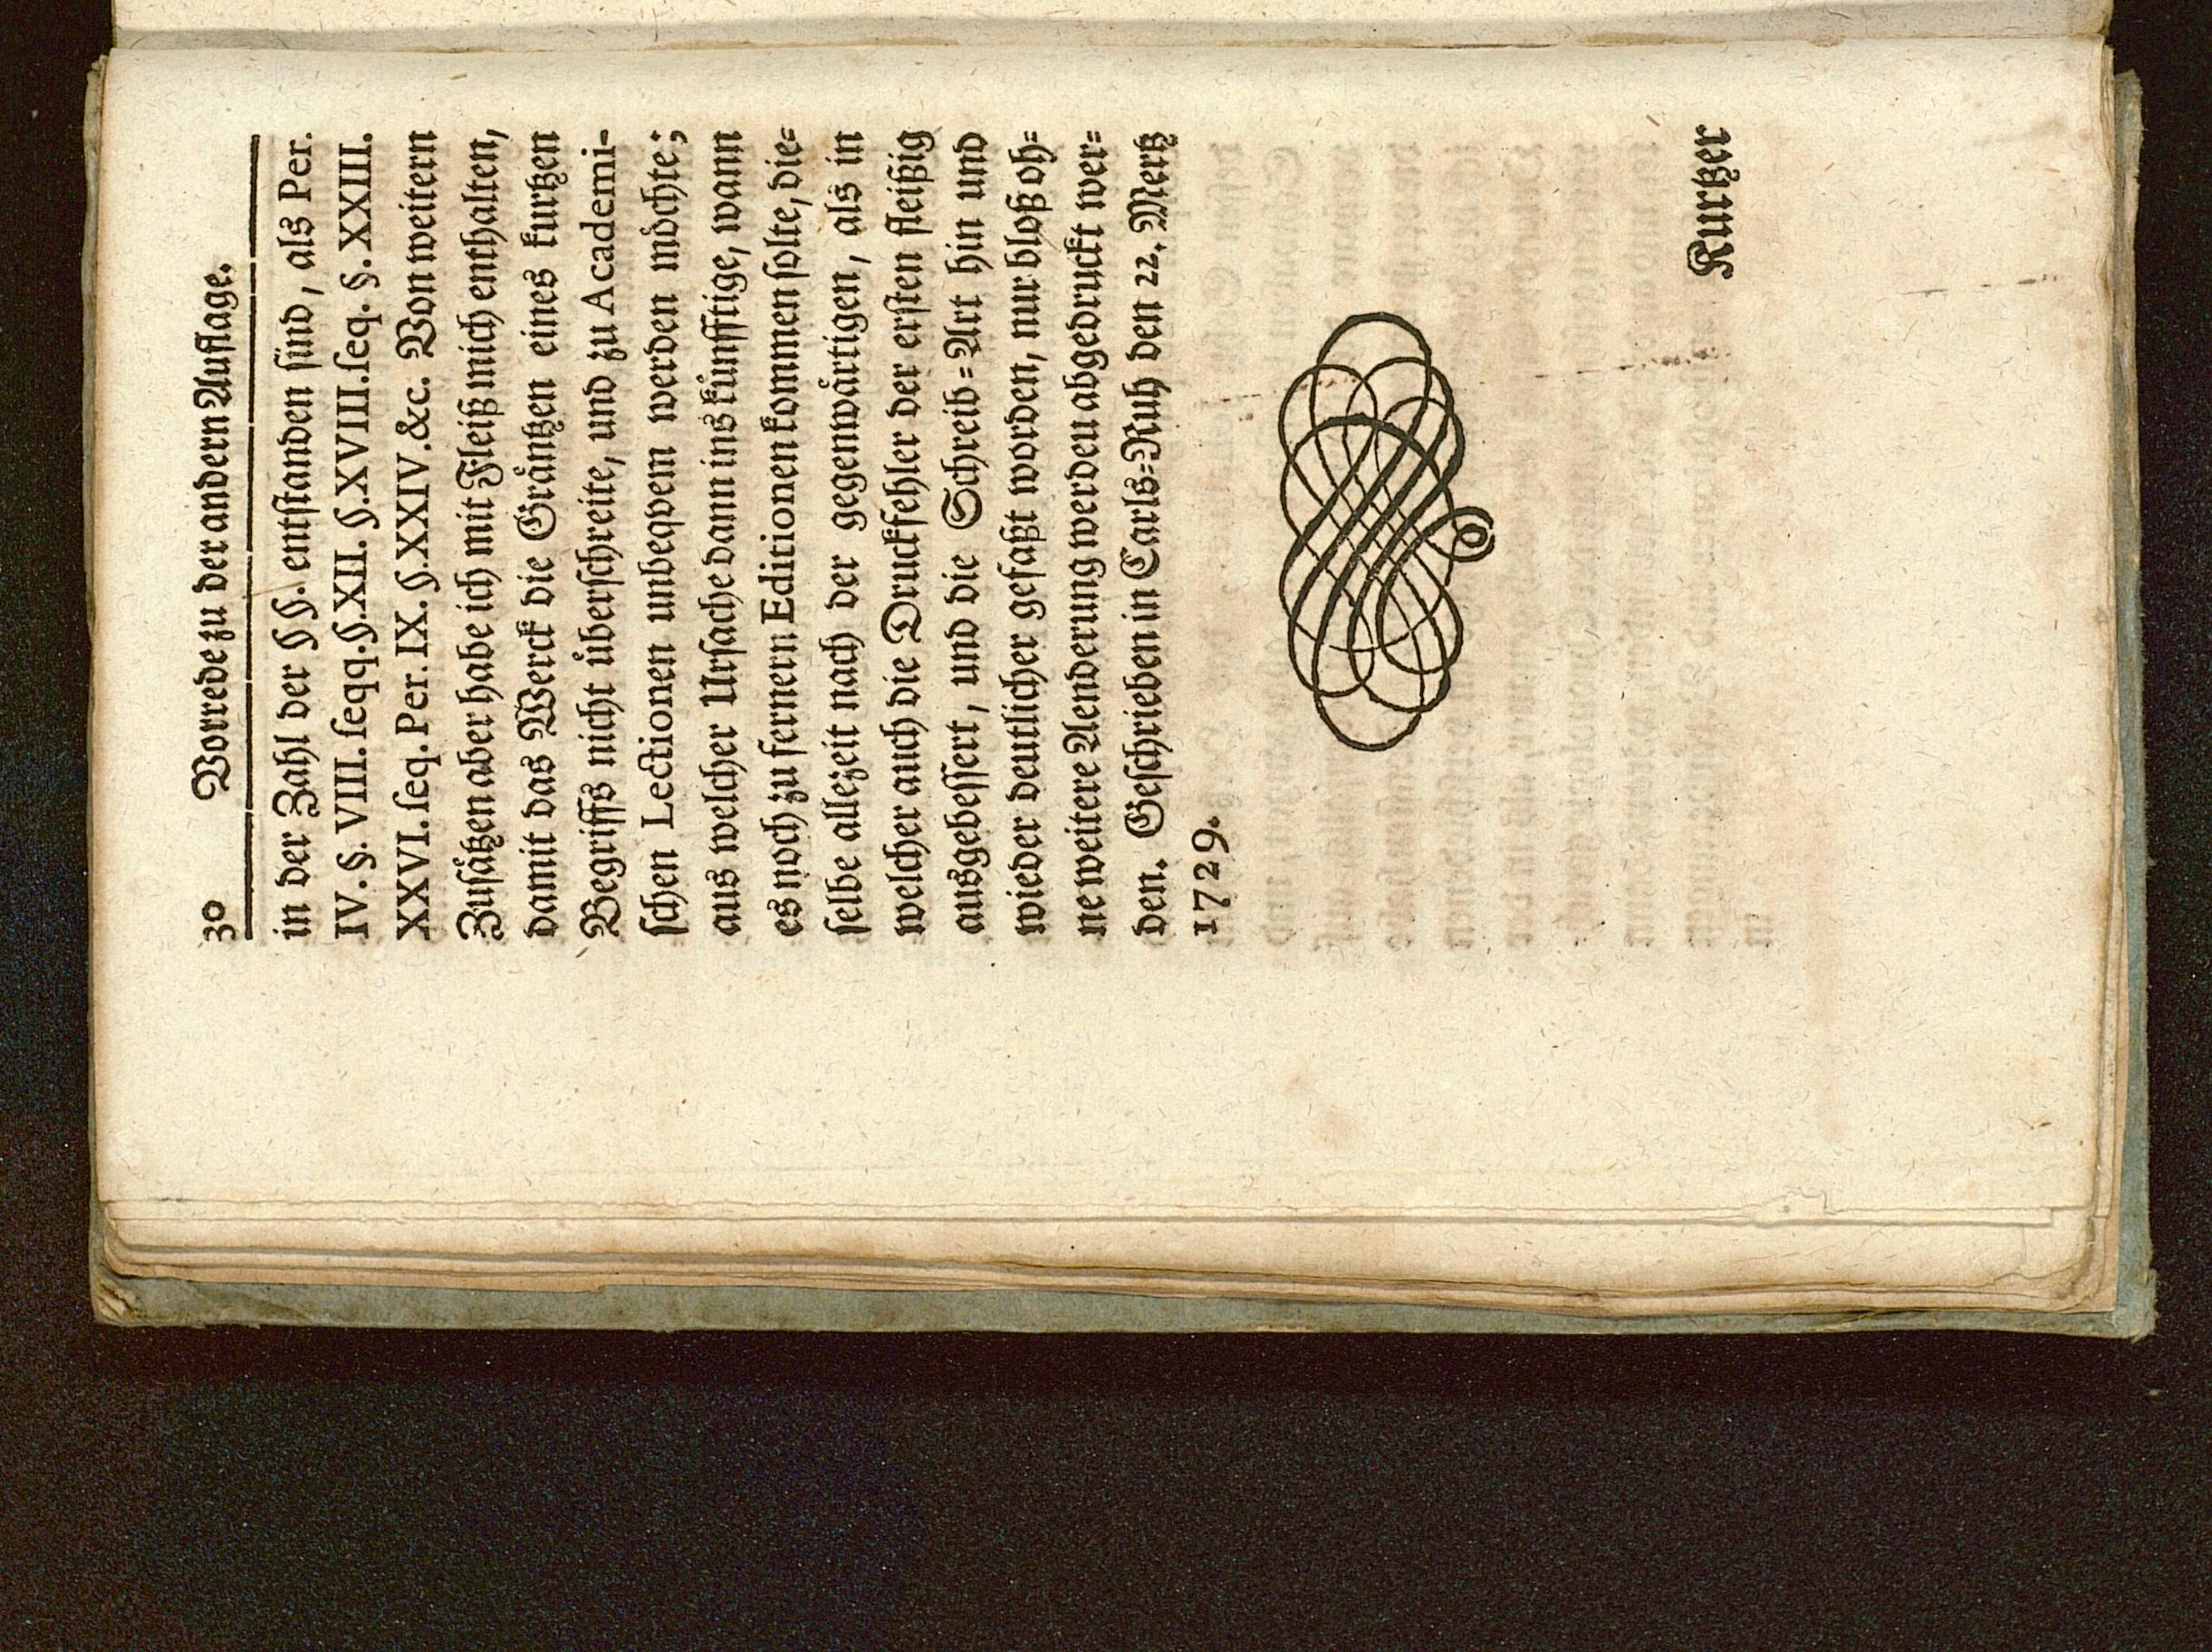 30 Vorrede zu der andern Auflage.
in der Zahl der §§. entſtanden ſind, als Per.
IV. §. VIII. ſeqq. §. XII. §. XVIII. ſeq. §. XXIII.
XXVI. ſeq. Per. IX. §. XXIV. &c. Von weitern
Zuſåtzen aber habe ich mit Fleiß mich enthalten,
damit das Werck die Gråntzen eines kurtzen
Begriffs nicht ůberſchreite, und zu Academi-
ſchen Lectionen unbeqvem werden mőchte;
aus welcher Urſache dann ins kůnfftige, wann
es noch zu fernern Editionen kommen ſolte, die=
ſelbe allezeit nach der gegenwårtigen, als in
welcher auch die Druckfehler der erſten fleißig
ausgebeſſert, und die Schreib=Art hin und
wieder deutlicher gefaßt worden, nur bloß oh=
ne weitere Aenderung werden abgedruckt wer=
den. Geſchrieben in Carls=Ruh den 22. Mertz
1729.
Kurtzer